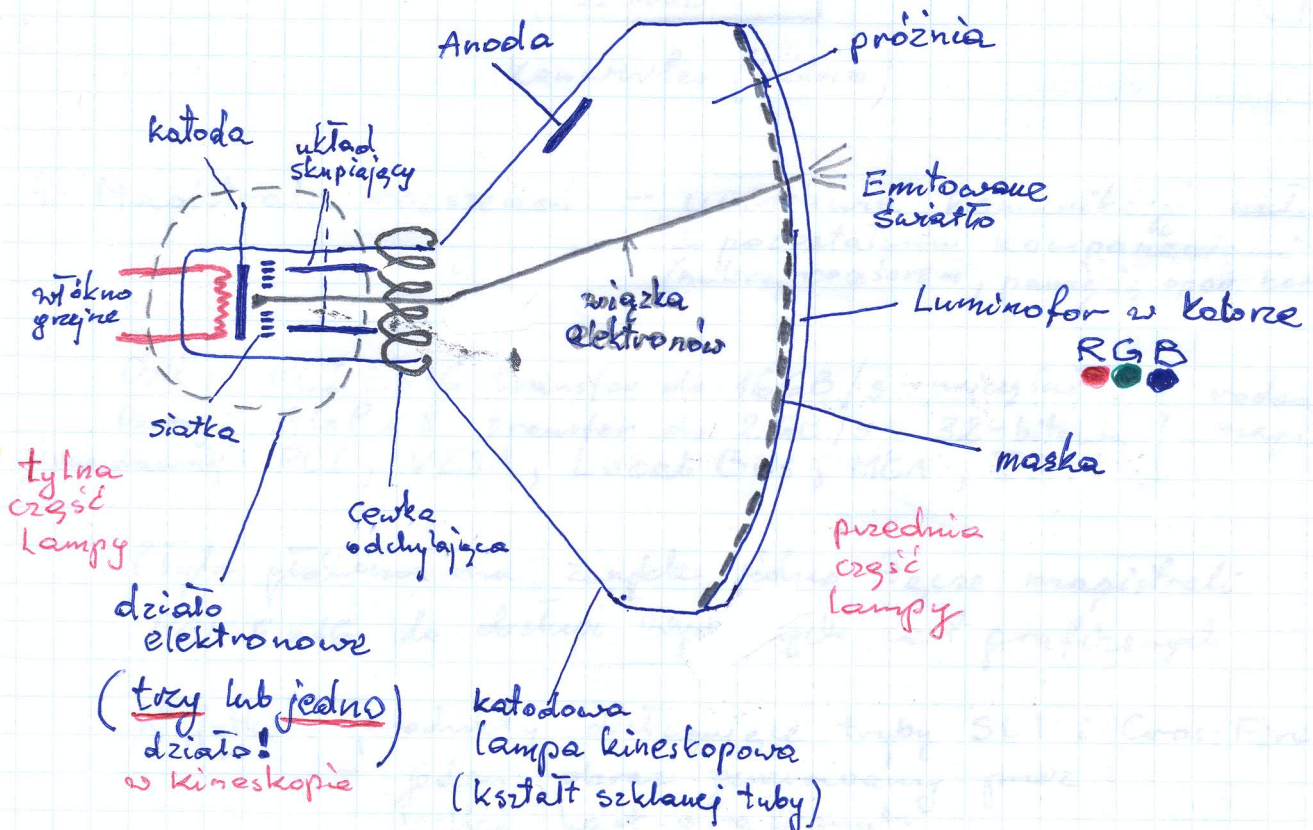 Anoda
próżnia
katoda
układ
skupiający
Emitowane
światło
włókno
grzejne
wiązka
elektronów
Luminofor w kolorze
R G B
siatka
maska
tylna
część
lampy
cewka
odchylająca
przednia
część
lampy
działo
elektronowe
(trzy lub jedno)
działo!
w kineskopie
katodowa
lampa kineskopowa
(kształt szklanej tuby)